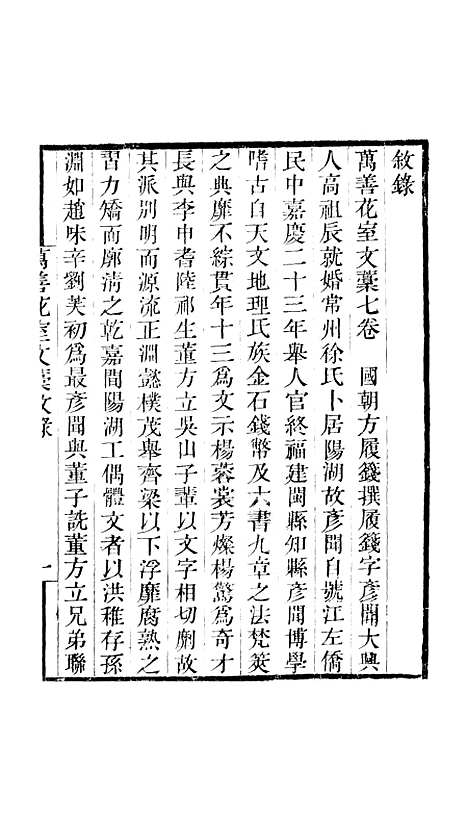 敘錄
萬善花室文藁七卷　國朝方履籛撰履籛字彥聞大興
人高祖辰就婚常州徐氏卜居陽湖故彥聞自號江左僑
民中嘉慶二十三年舉人官終福建閩縣知縣彥聞博學
嗜古自天文地理氏族金石錢幣及六書九章之法梵筴
之典靡不綜貫年十三為文示楊蓉裳芳燦楊驚為奇才
長與李申耆陸祁生董方立吳山子輩以文字相切劘故
其派別明而源流正淵懿樸茂舉齊梁以下浮靡腐熟之
習力矯而廓清之乾嘉間陽湖工偶體文者以洪稚存孫
淵如趙味辛劉芙初為最彥聞與董子詵董方立兄弟聯
萬善花室文藁敘錄
一